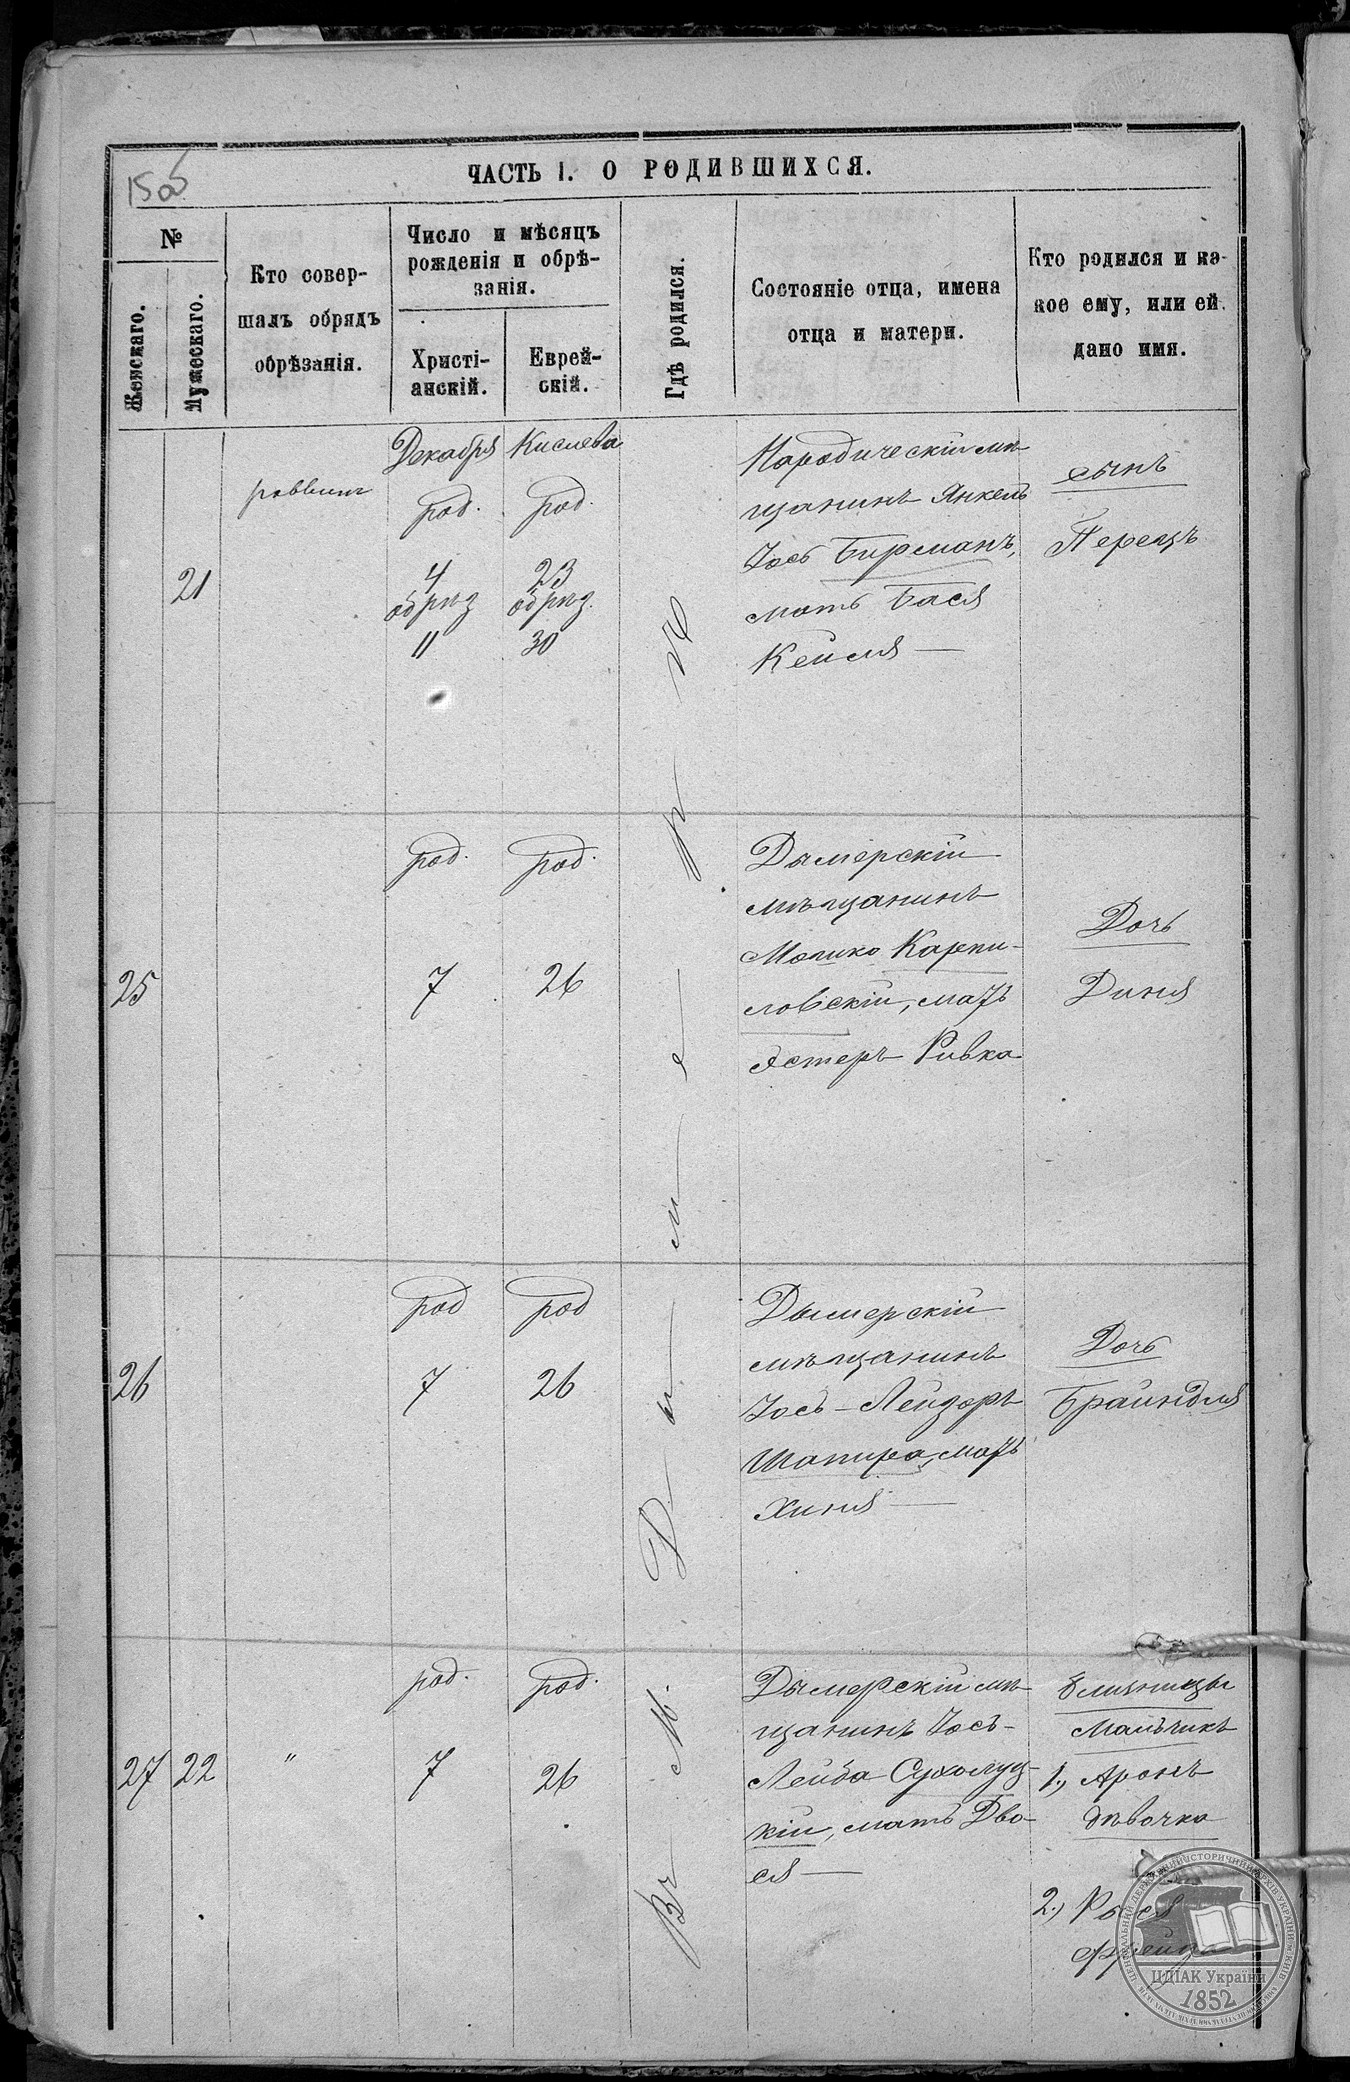 15об
ЧАСТЬ І. О РОДИВШИХСЯ.
№
Женскаго.
Мужескаго.
Кто совер-
шалъ обрядъ
обрѣзанія.
Число и мѣсяцъ
рожденія и обрѣ-
занія.
Христі-
анскій.
Еврей-
скій.
Гдѣ родился.
Состояніе отца, имена
отца и матери.
Кто родился и ка-
кое ему, или ей,
дано имя.
Въ М. Дымерѣ
21
раввинъ
Декабря
род.
4
обрѣз
11
Кислева
род.
23
обрѣз.
30
Народическій мѣ-
щанинъ Янкель
Іось Бирманъ,
мать Бася
Кейля —
сынъ
Перецъ
25
род.
7
род.
26
Дымерскій
мѣщанинъ
Мошко Карпи-
ловскій, мать
Эстеръ Ривка
Дочь
Диня
26
род
7
род
26
Дымерскій
мѣщанинъ
Іось-Лейзоръ
Шапира, мать
Хиня —
Дочь
Брайндля
27 22
"
род.
7
род.
26
Дымерскій мѣ-
щанинъ Іось-
Лейба Сухолуц-
кій, мать Дво-
ся —
близницы
Мальчикъ
1., Аронъ
дѣвочка
2., Рыся
Фрейда
ЦЕНТРАЛЬНИЙ ДЕРЖАВНИЙ ІСТОРИЧНИЙ АРХІВ УКРАЇНИ, м. КИЇВ
ЦДІАК України
1852